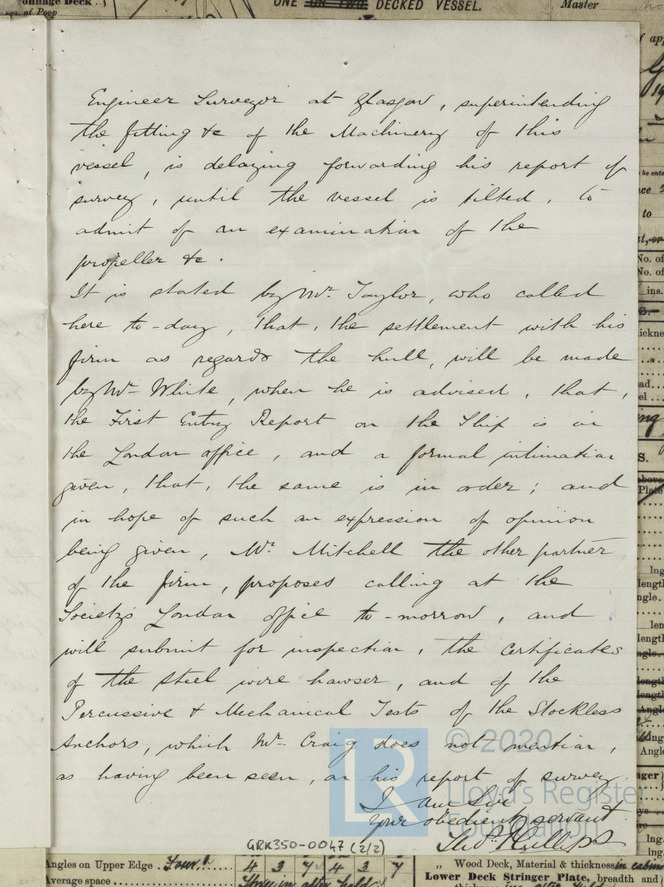 onnage Deck
of Poop
ONE OR TWO DECKED VESSEL.
Master
Engineer Surveyor at Glasgow, superintending
the fitting &c of the Machinery of this
vessel, is delaying forwarding his report of
survey, until the vessel is tilted, to
admit of an examination of the
propeller &c.
It is stated by Mr. Taylor, who called
here to-day, that, the settlement with his
firm as regards the hull, will be made
by Mr White, when he is advised, that,
the First Entry Report on the Ship is in
the London office, and a formal intimation
given, that, the same is in order; and
in hope of such an expression of opinion
being given, Mr. Mitchell the other partner
of the firm, proposes calling at the
Society's London office to-morrow, and
will submit for inspection, the certificates
of the steel wire hawser, and of the
Percussive & Mechanical Tests of the Stockless
Anchors, which Mr. Craig does not mention,
as having been seen, on his report of survey.
I am Sir
Your obedient servant
© 2020
Lloyd's Register
Foundation
LR
GRK350-0047 (2/2)
Angles on Upper Edge
4 3 7 4 3 7
Average space
„ Wood Deck, Material & thickness
Lower Deck Stringer Plate, breadth and